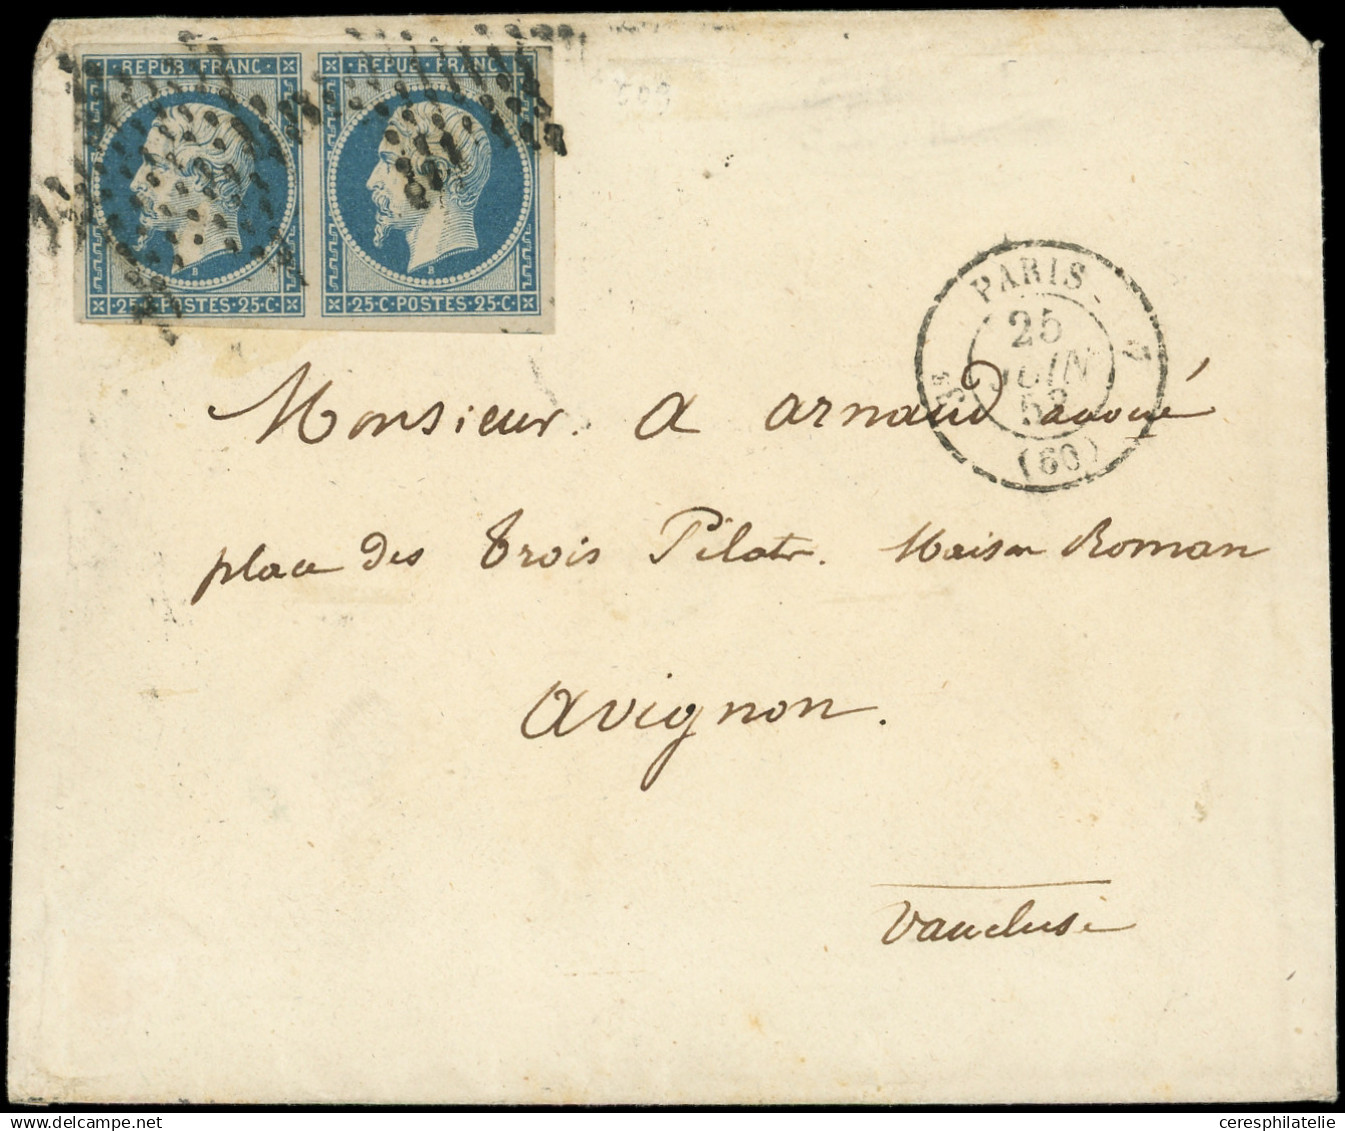 REPUB FRANC REPUB FRANC
B B
25·C·POSTES·25·C 25·C·POSTES·25·C
PARIS
25
JUIN
(60)
Monsieur A Arnaud avoué
place des Trois Pilats. Maison Roman
Avignon.
Vaucluse
ceresphilatelie